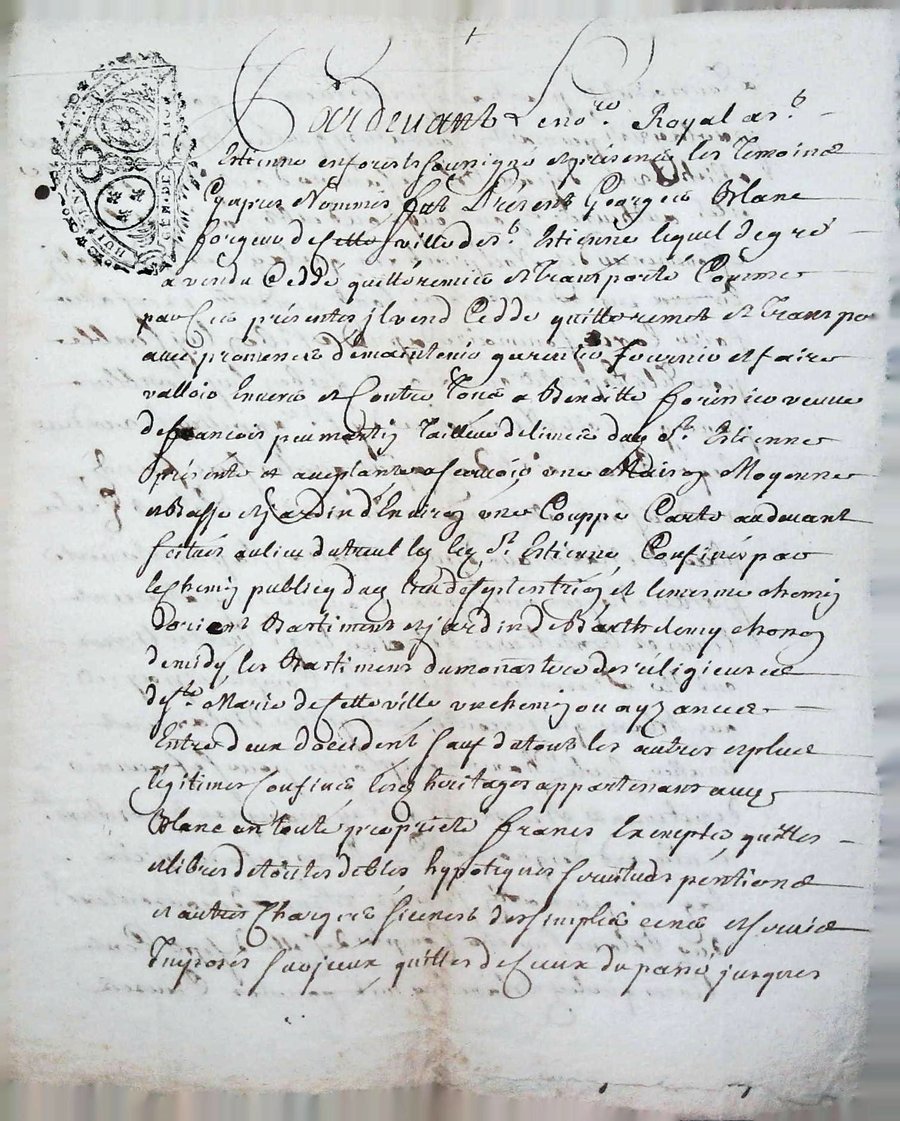 Pardevant Le no.re Royal a s.t
Estienne en forest soussigné et présence les Temoins
Cy apres Nommés fut Présent Georges Blanc
forgeur de cette ville de s.t Estienne lequel de gré
a vendu Cedde quitté remis et transporté Comme
par Ces présentes jl vend Cedde quitte remet et Transpo
avec promences de maintenir garentir fournir et faire
valloir Envers et Contre Tous a Benoitte forissier veuve
de françois peumartin Tailleur de limes dud St. Estienne
présente et aceptante asavoir une Maison Moyenne
et Basse et Jardin d'Environ une Couppe Carte au devant
scitués au lieu du treul lez led St. Estienne, Confinés par
le chemin publicq dud treul de septentrion et le mesme chemin
dorient Bastiment et jardin de Barthelemy chonon
de midy, les Bastiment du monastere des réligieuses
de ste. Marie de cette ville un chemin ou ayzances
Entre deux d'occident sauf de tous les autres et plus
légitimes Confins lesd heritages appartenant aud
Blanc en toute propriété francs Exempts, quittes
et libres de toutes debtes hypoteques servitudes pentions
et autres Charges sienest des simples cens et servis
Imposés sur jceux quittes de Ceux du passé jusques